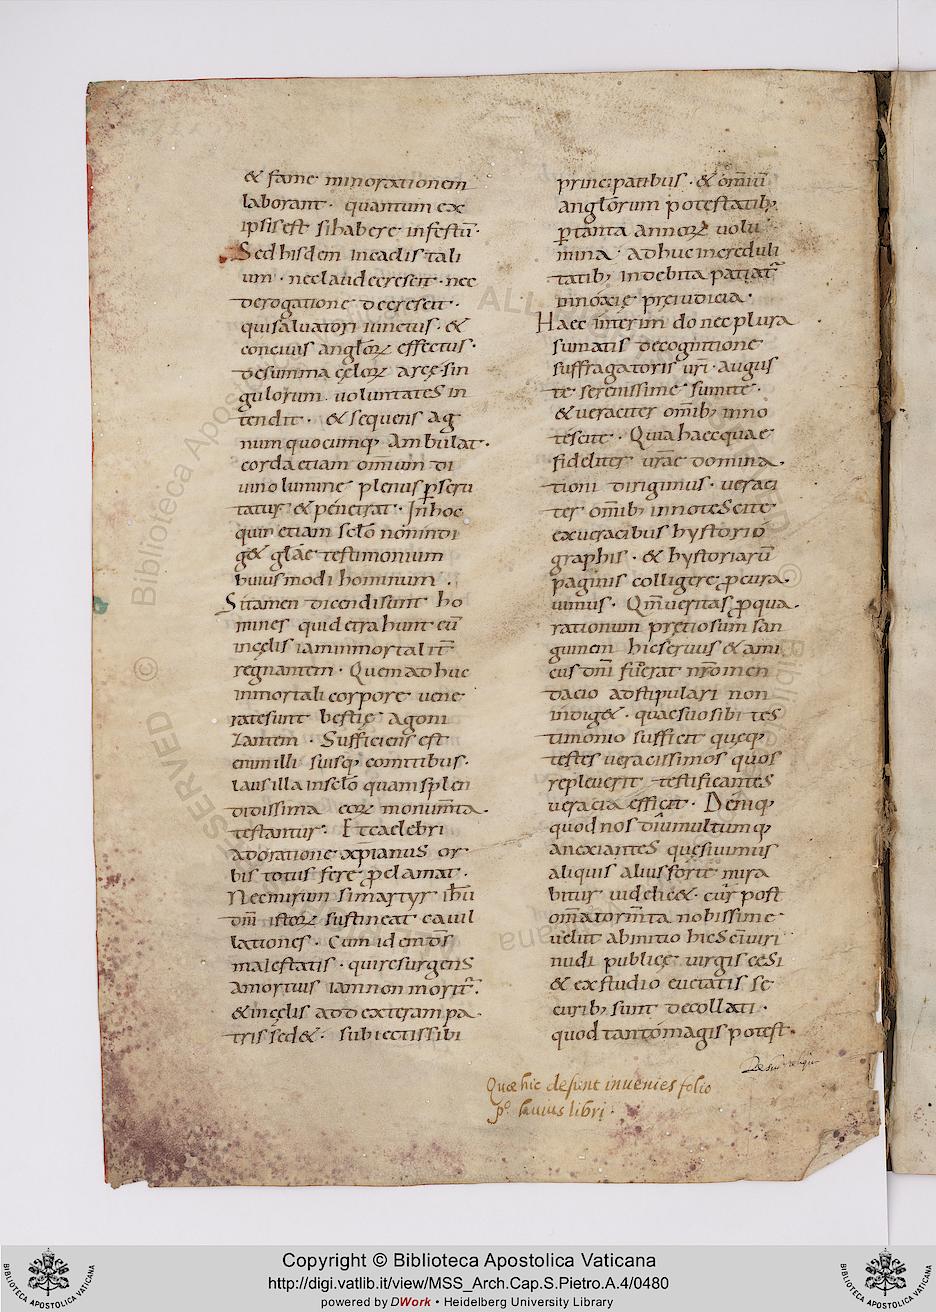 & fame minorationem
laborant · quantum ex
ipsis est si habere infestū ·
Sed hisdem in eadis tali
um · nec laude crescit · nec
derogatione decrescit ·
qui saluatori iunctus · &
conciuis anglōꝝ effectus ·
de summa cęloꝝ arce sin
gulorum · uoluntates in
tendit · & sequens ag
num quocumq; ambulat ·
corda etiam om̄ium di
uino lumine plenus ꝑscru
tatur & penetrat · In hoc
quin etiam sclō non indi
g& glāe testimonium
huiusmodi hominum ·
Si tamen dicendi sunt ho
mines qui detrahunt eū
in cęlis iam inmortalit̄
regnantem · Quem adhuc
in mortali corpore uene
rate sunt bestię agoni
zantem · Sufficiens est
enim illi suisq; comitibus ·
laus illa in sclō quam splen
didissima eoꝝ monum̄ta ·
testantur · Et caelebri
adoratione xp̄ianus or
bis totus fere ꝓclamat ·
Nec mirum si martyr ih̄u
dn̄i istoꝝ sustineat cauil
lationes · Cum idem dn̄s
maiestatis · qui resurgens
a mortuis iam non morit̄ ·
& in cęlis ad dexteram pa
tris sed& · subiectis sibi
principatibus · & om̄iū
anglōrum potestatib;
ꝑ tanta annoꝝ uolu
mina · adhuc increduli
tatib; indebita patiat̄
innoxię preiudicia ·
Haec interim donec plura
sumatis de cognitione
suffragatoris uri · augus
te serenissime sumite ·
& ueraciter om̄ib; inno
tescite · Quia haec quae
fideliter ur̄ae domina
tioni dirigimus · ueraci
ter om̄ib; innotescite
ex ueracibus hystorio
graphis · & hystoriarū
paginis colligere ꝓcura
uimus · Qm̄ ueritas ꝓ qua
rationum pretiosum san
guinem hic seruus & ami
cus dn̄i fuderat nr̄o men
dacio adstipulari non
indig& · quae suo sibi tes
timonio sufficit quęq;
testes ueracissimos quos
repleuerit testificantes
ueracia efficit · Deniq;
quod nos diu multumq;
anexiantes quesiuimus
aliquis alius forte mira
bitur uidelic& · cur post
om̄a torm̄ta nobissime
uelut ab initio hi sc̄i uiri
nudi publice uirgis cesi
& ex studio euectatis se
curib; sunt decollati ·
quod tanto magis potest ·
Quæ hic desunt inuenies folio
huius libri ·